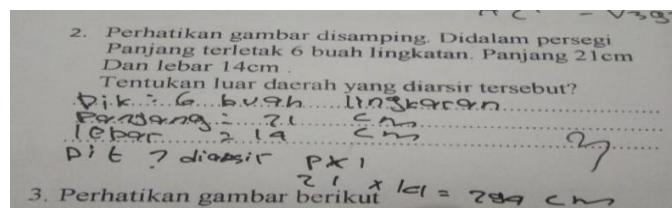 2. Perhatikan gambar disamping. Didalam persegi
Panjang terletak 6 buah lingkatan. Panjang 21cm
Dan lebar 14cm .
Tentukan luar daerah yang diarsir tersebut?
Dik : 6 buah lingkaran
Panjang = 21 cm
lebar = 14 cm
Dit ? diarsir P x l
21 x 14 = 294 cm
3. Perhatikan gambar berikut